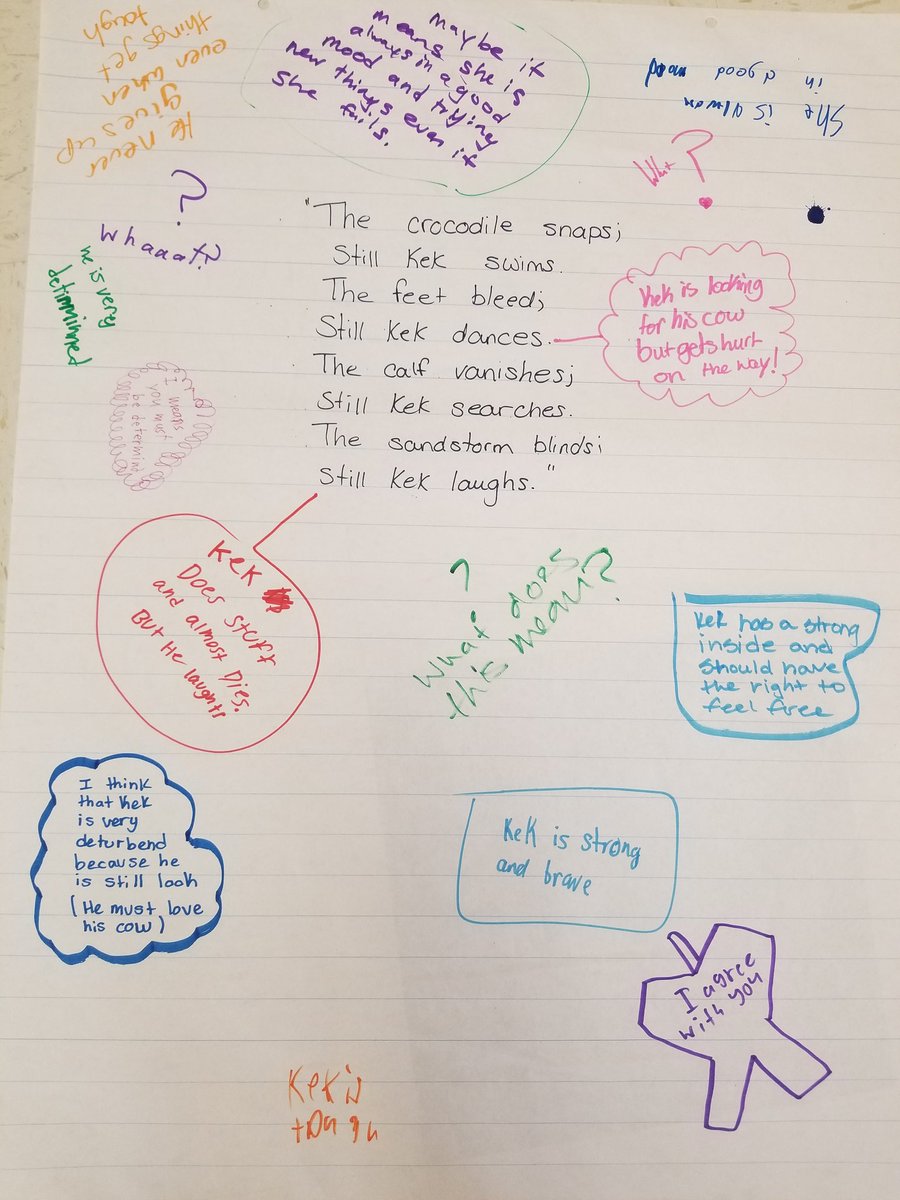 He never
gives up
even when
things get
tough
Maybe it
means she is
always in a good
mood and trying
new things even if
she fails.
She is
in a good mood
What?
?
Whaaat?
he is very
detirminned
"The crocodile snaps;
Still Kek swims.
The feet bleed;
Still Kek dances.
The calf vanishes;
Still Kek searches.
The sandstorm blinds;
Still Kek laughs."
Kek is looking
for his cow
but gets hurt
on the way!
I means
you must
be determind
Kek
Does stuff
and almost Dies.
But He laughts
?
What does
this mean?
Kek has a strong
inside and
should have
the right to
feel free
I think
that Kek
is very
deturbend
because he
is still look
(He must love
his cow)
Kek is strong
and brave
I agree
with you
Kek is